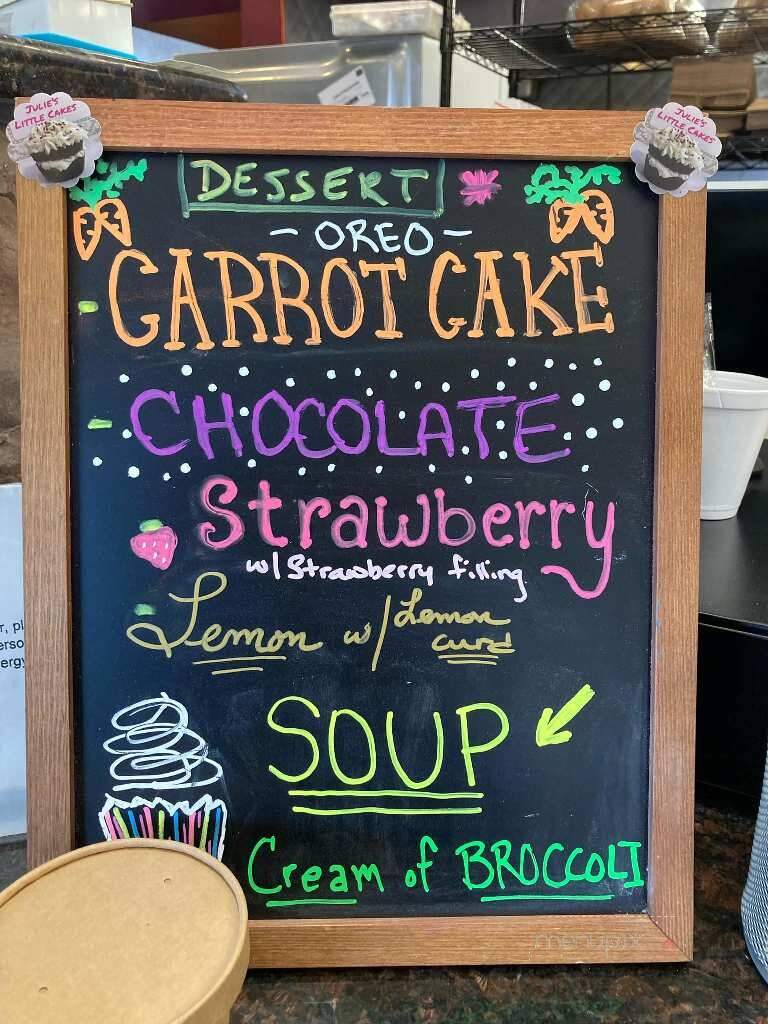 JULIE'S
LITTLE CAKES
JULIE'S
LITTLE CAKES
DESSERT
- OREO -
CARROT CAKE
CHOCOLATE
Strawberry
w/ Strawberry filling
Lemon w/ Lemon
curd
SOUP
Cream of BROCCOLI
r, pl
erso
ergy
menupix